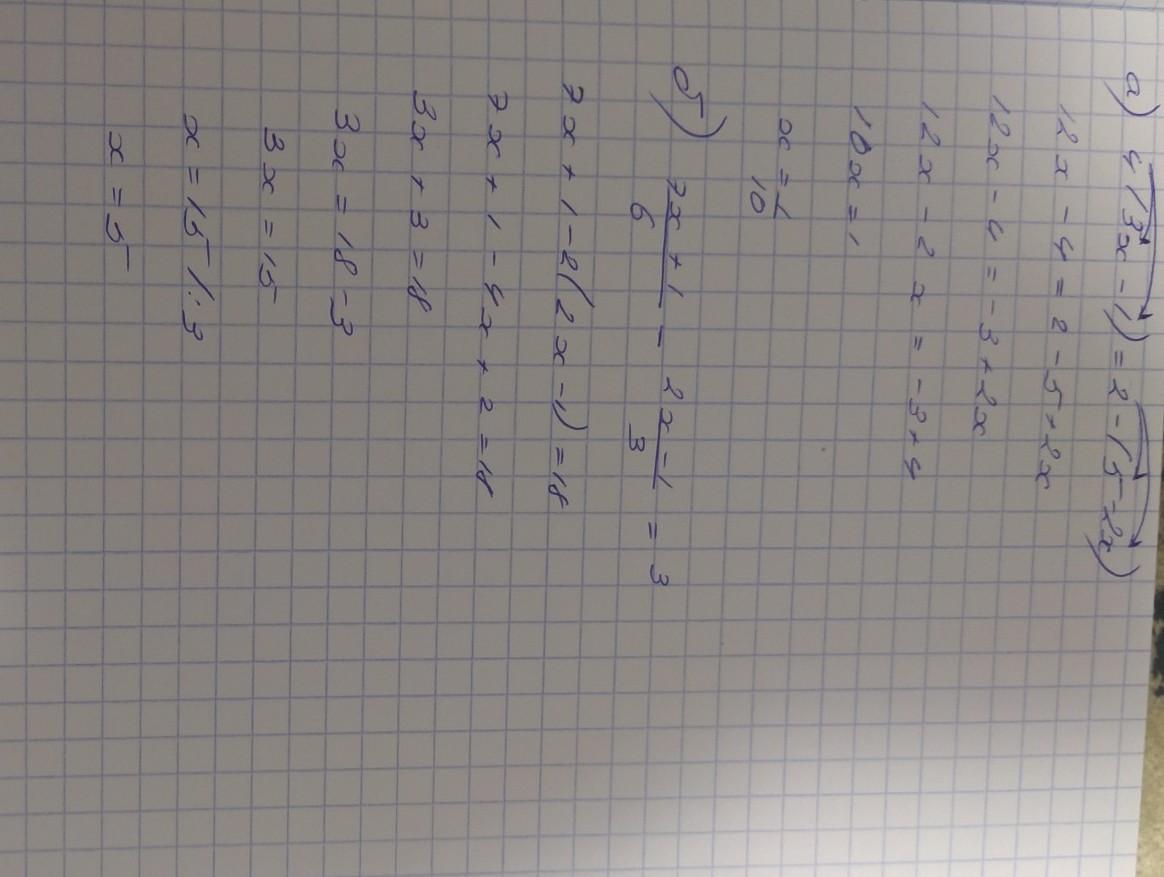 а) 4(3x-1)=2-(5-2x)
12x-4=2-5+2x
12x-4=-3+2x
12x-2x=-3+4
10x=1
x=1/10
б) 7x+1/6 - 2x-1/3 = 3
7x+1-2(2x-1)=18
7x+1-4x+2=18
3x+3=18
3x=18-3
3x=15
x=15/:3
x=5